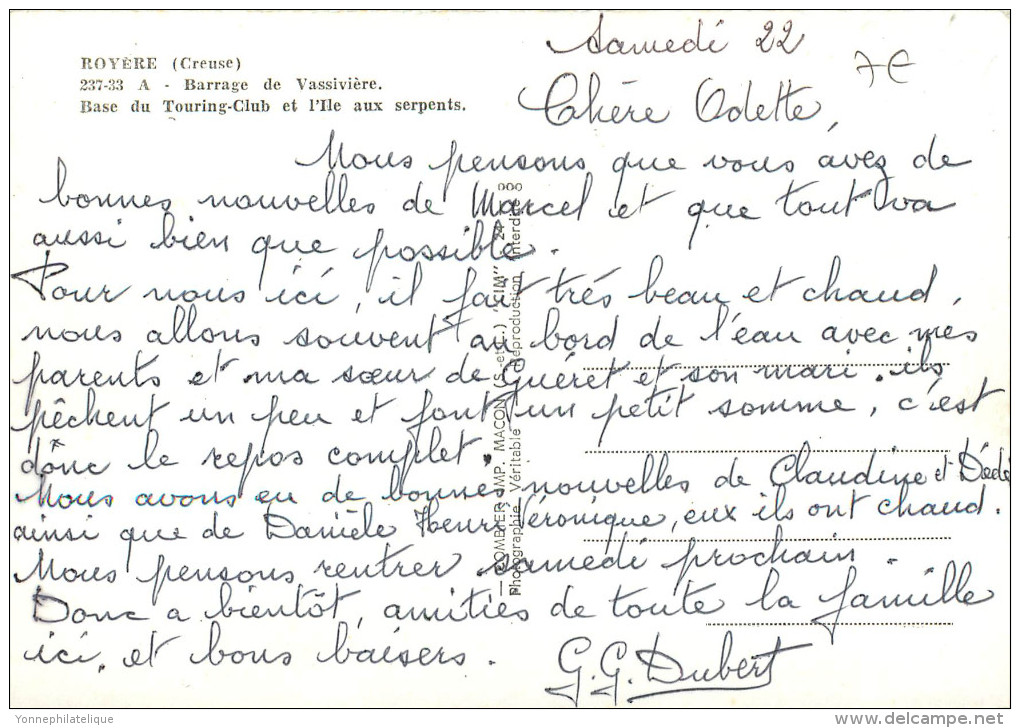 ROYÈRE (Creuse)
237-33 A - Barrage de Vassivière.
Base du Touring-Club et l'Ile aux serpents.
Samedi 22
7€
Chère Odette,
Nous pensons que vous avez de
bonnes nouvelles de Marcel et que tout va
aussi bien que possible.
Pour nous ici, il fait très beau et chaud,
nous allons souvent au bord de l'eau avec mes
parents et ma sœur de Guéret et son mari. ils
pêchent un peu et font un petit somme, c'est
donc le repos complet.
Nous avons eu de bonnes nouvelles de Claudine et Dédé
ainsi que de Danièle Henri Véronique, eux ils ont chaud.
Nous pensons rentrer samedi prochain.
Donc a bientôt, amitiés de toute la famille
ici, et bons baisers.
G.G. Dubert
COMBIER IMP. MACON (S.-et-L.) "CIM"
Photographie Véritable Reproduction Interdite
Yonnephilatelique
www.delcampe.net